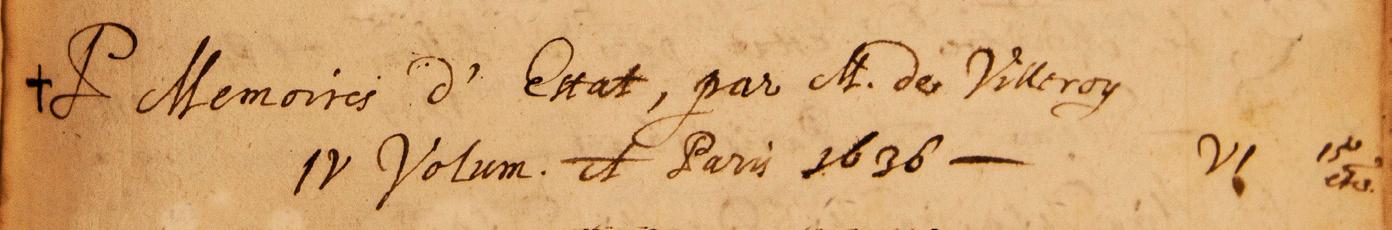 †P Memoires d' Estat, par M. de Villeroy
IV Volum. A Paris 1636 — VI